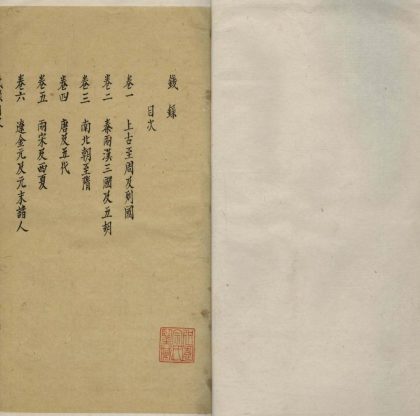 錢錄
目次
卷一 上古至周及列國
卷二 秦兩漢三國及五胡
卷三 南北朝至隋
卷四 唐及五代
卷五 兩宋及西夏
卷六 遼金元及元末諸人